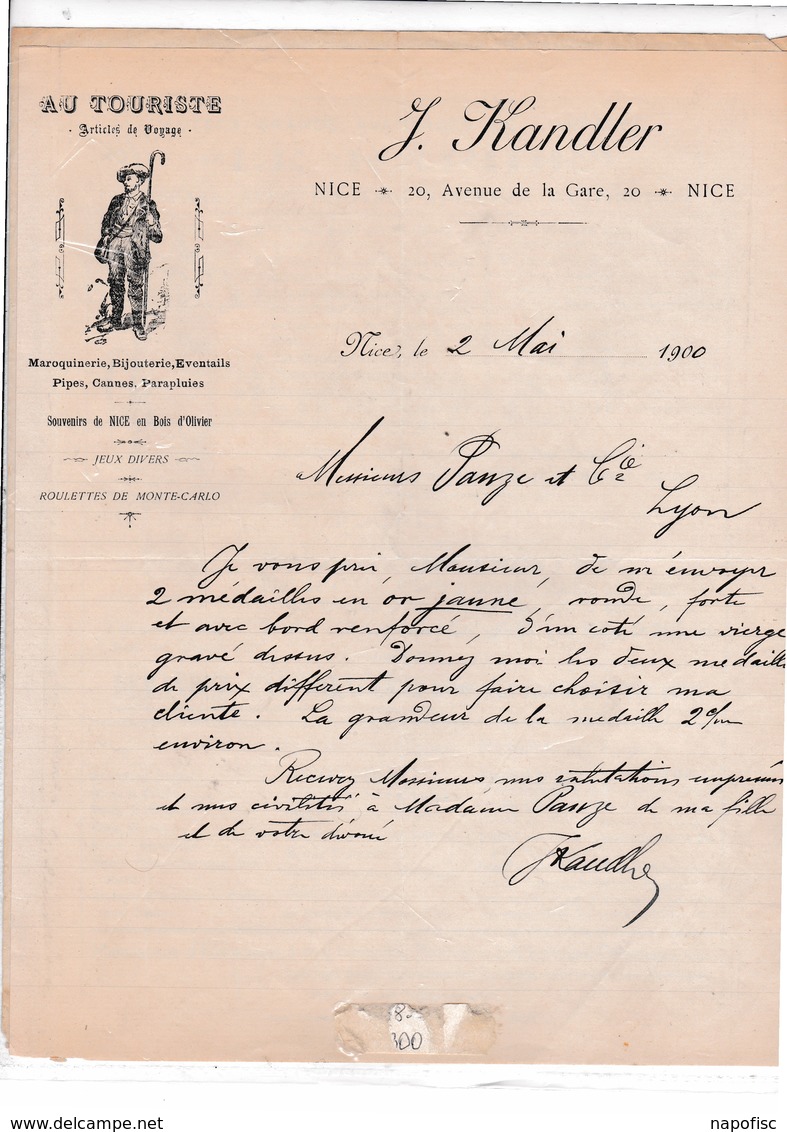 AU TOURISTE
· Articles de Voyage ·
Maroquinerie, Bijouterie, Eventails
Pipes, Cannes, Parapluies
Souvenirs de NICE en Bois d'Olivier
JEUX DIVERS
ROULETTES DE MONTE-CARLO
J. Kandler
NICE 20, Avenue de la Gare, 20 NICE
Nice, le 2 Mai 1900
Messieurs Panze et Cie
Lyon
Je vous prie, Monsieur, de m'envoyer
2 médailles en or jaune, ronde, forte
et avec bord renforcé, d'un coté une vierge
gravé dessus. Donnez moi les deux medaille
de prix différent pour faire choisir ma
cliente. La grandeur de la medaille 2 c/m
environ.
Recevez Messieurs nos salutations empressées
et nos civilités à Madame Panze de ma fille
et de votre dévoué
JKandler
300
napofisc